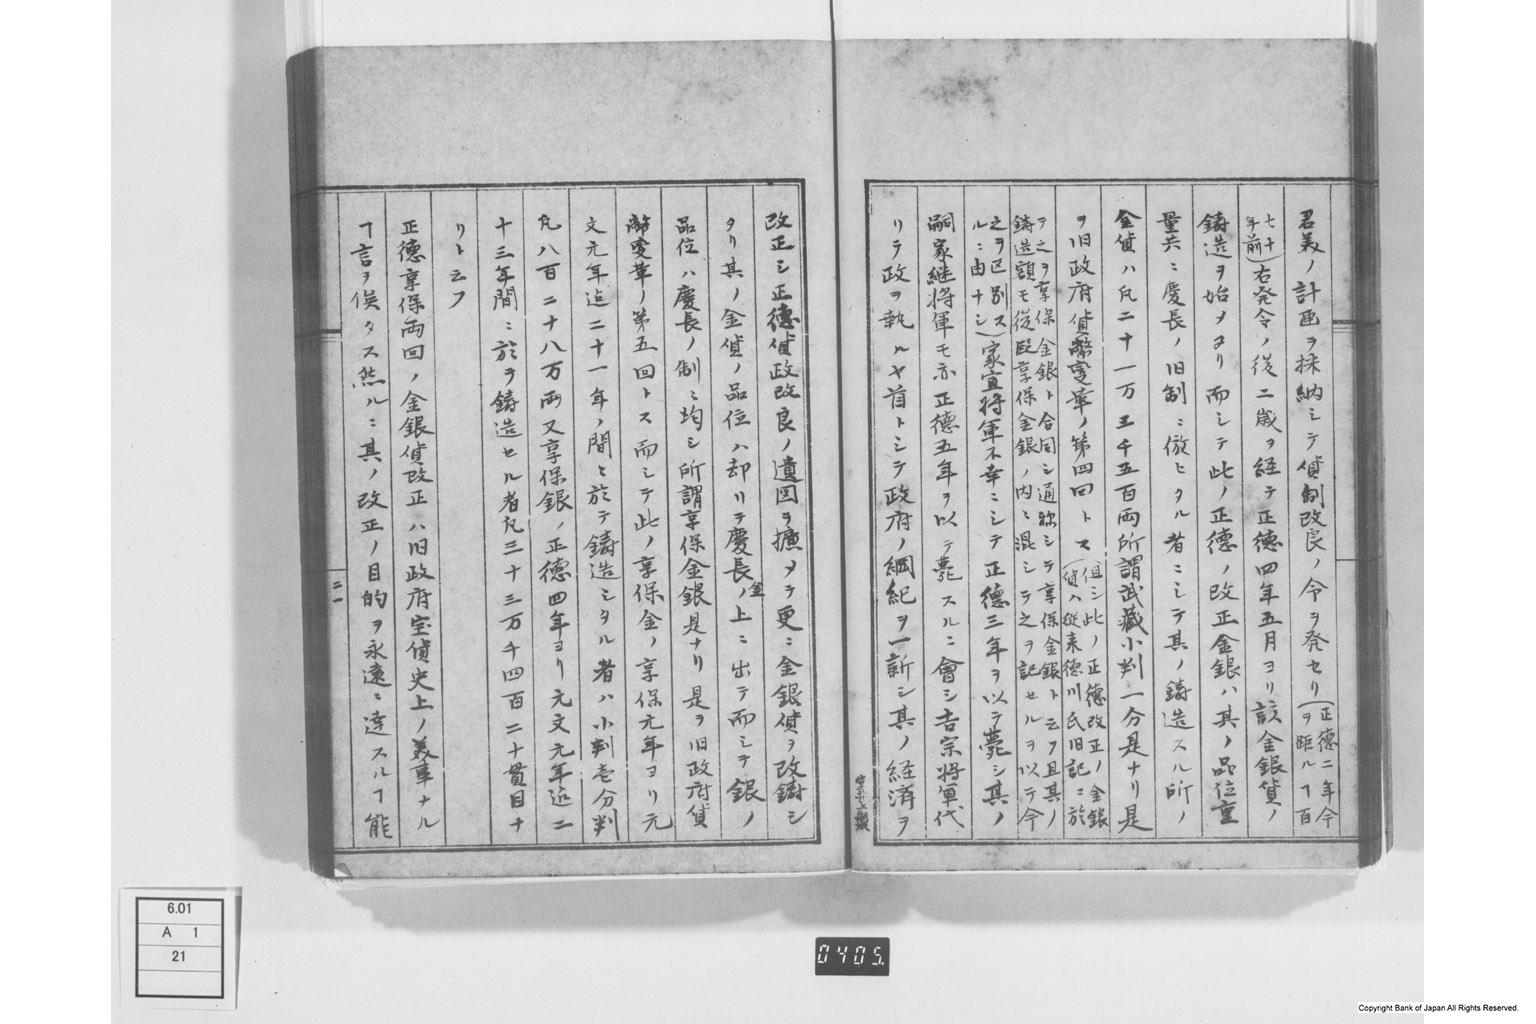 君美ノ計画ヲ採納シテ貨制改良ノ令ヲ発セリ(正徳二年今
ヲ距ルヿ百
七十
年前)右発令ノ後二歳ヲ経テ正徳四年五月ヨリ該金銀貨ノ
鋳造ヲ始メタリ而シテ此ノ正徳ノ改正金銀ハ其ノ品位重
量共ニ慶長ノ旧制ニ倣ヒタル者ニシテ其ノ鋳造スル所ノ
金貨ハ凡二十一万三千五百両所謂武蔵小判一分是ナリ是
ヲ旧政府貨幣変革ノ第四回トス(但シ此ノ正徳改正ノ金銀
貨ハ従来徳川氏旧記ニ於
テ之ヲ享保金銀ト合同シ通称シテ享保金銀ト云フ且其ノ
鋳造額モ従テ享保金銀ノ内ニ混シテ之ヲ記セルヲ以テ今
之ヲ区別ス
ルニ由ナシ)家宣将軍不幸ニシテ正徳三年ヲ以テ薨シ其ノ
嗣家継将軍モ亦正徳五年ヲ以テ薨スルニ會シ吉宗将軍代
リテ政ヲ執ルヤ首トシテ政府ノ綱紀ヲ一新シ其ノ経済ヲ
改正シ正徳貨政改良ノ遺図ヲ擴メテ更ニ金銀貨ヲ改鋳シ
タリ其ノ金貨ノ品位ハ却リテ慶長金ノ上ニ出テ而シテ銀ノ
品位ハ慶長ノ制ニ均シ所謂享保金銀是ナリ是ヲ旧政府貨
幣変革ノ第五回トス而シテ此ノ享保金ノ享保元年ヨリ元
文元年迄二十一年ノ間ニ於テ鋳造シタル者ハ小判壱分判
凡八百二十八万両又享保銀ノ正徳四年ヨリ元文元年迄二
十三年間ニ於ヲ鋳造セル者凡三十三万千四百二十貫目ナ
リト云フ
正徳享保両回ノ金銀貨改正ハ旧政府宝貨史上ノ美事ナル
ヿ言ヲ俟タス然ルニ其ノ改正ノ目的ヲ永遠ニ達スルヿ能
二一
6.01
A 1
21
0405.
Copyright Bank of Japan All Rights Reserved.